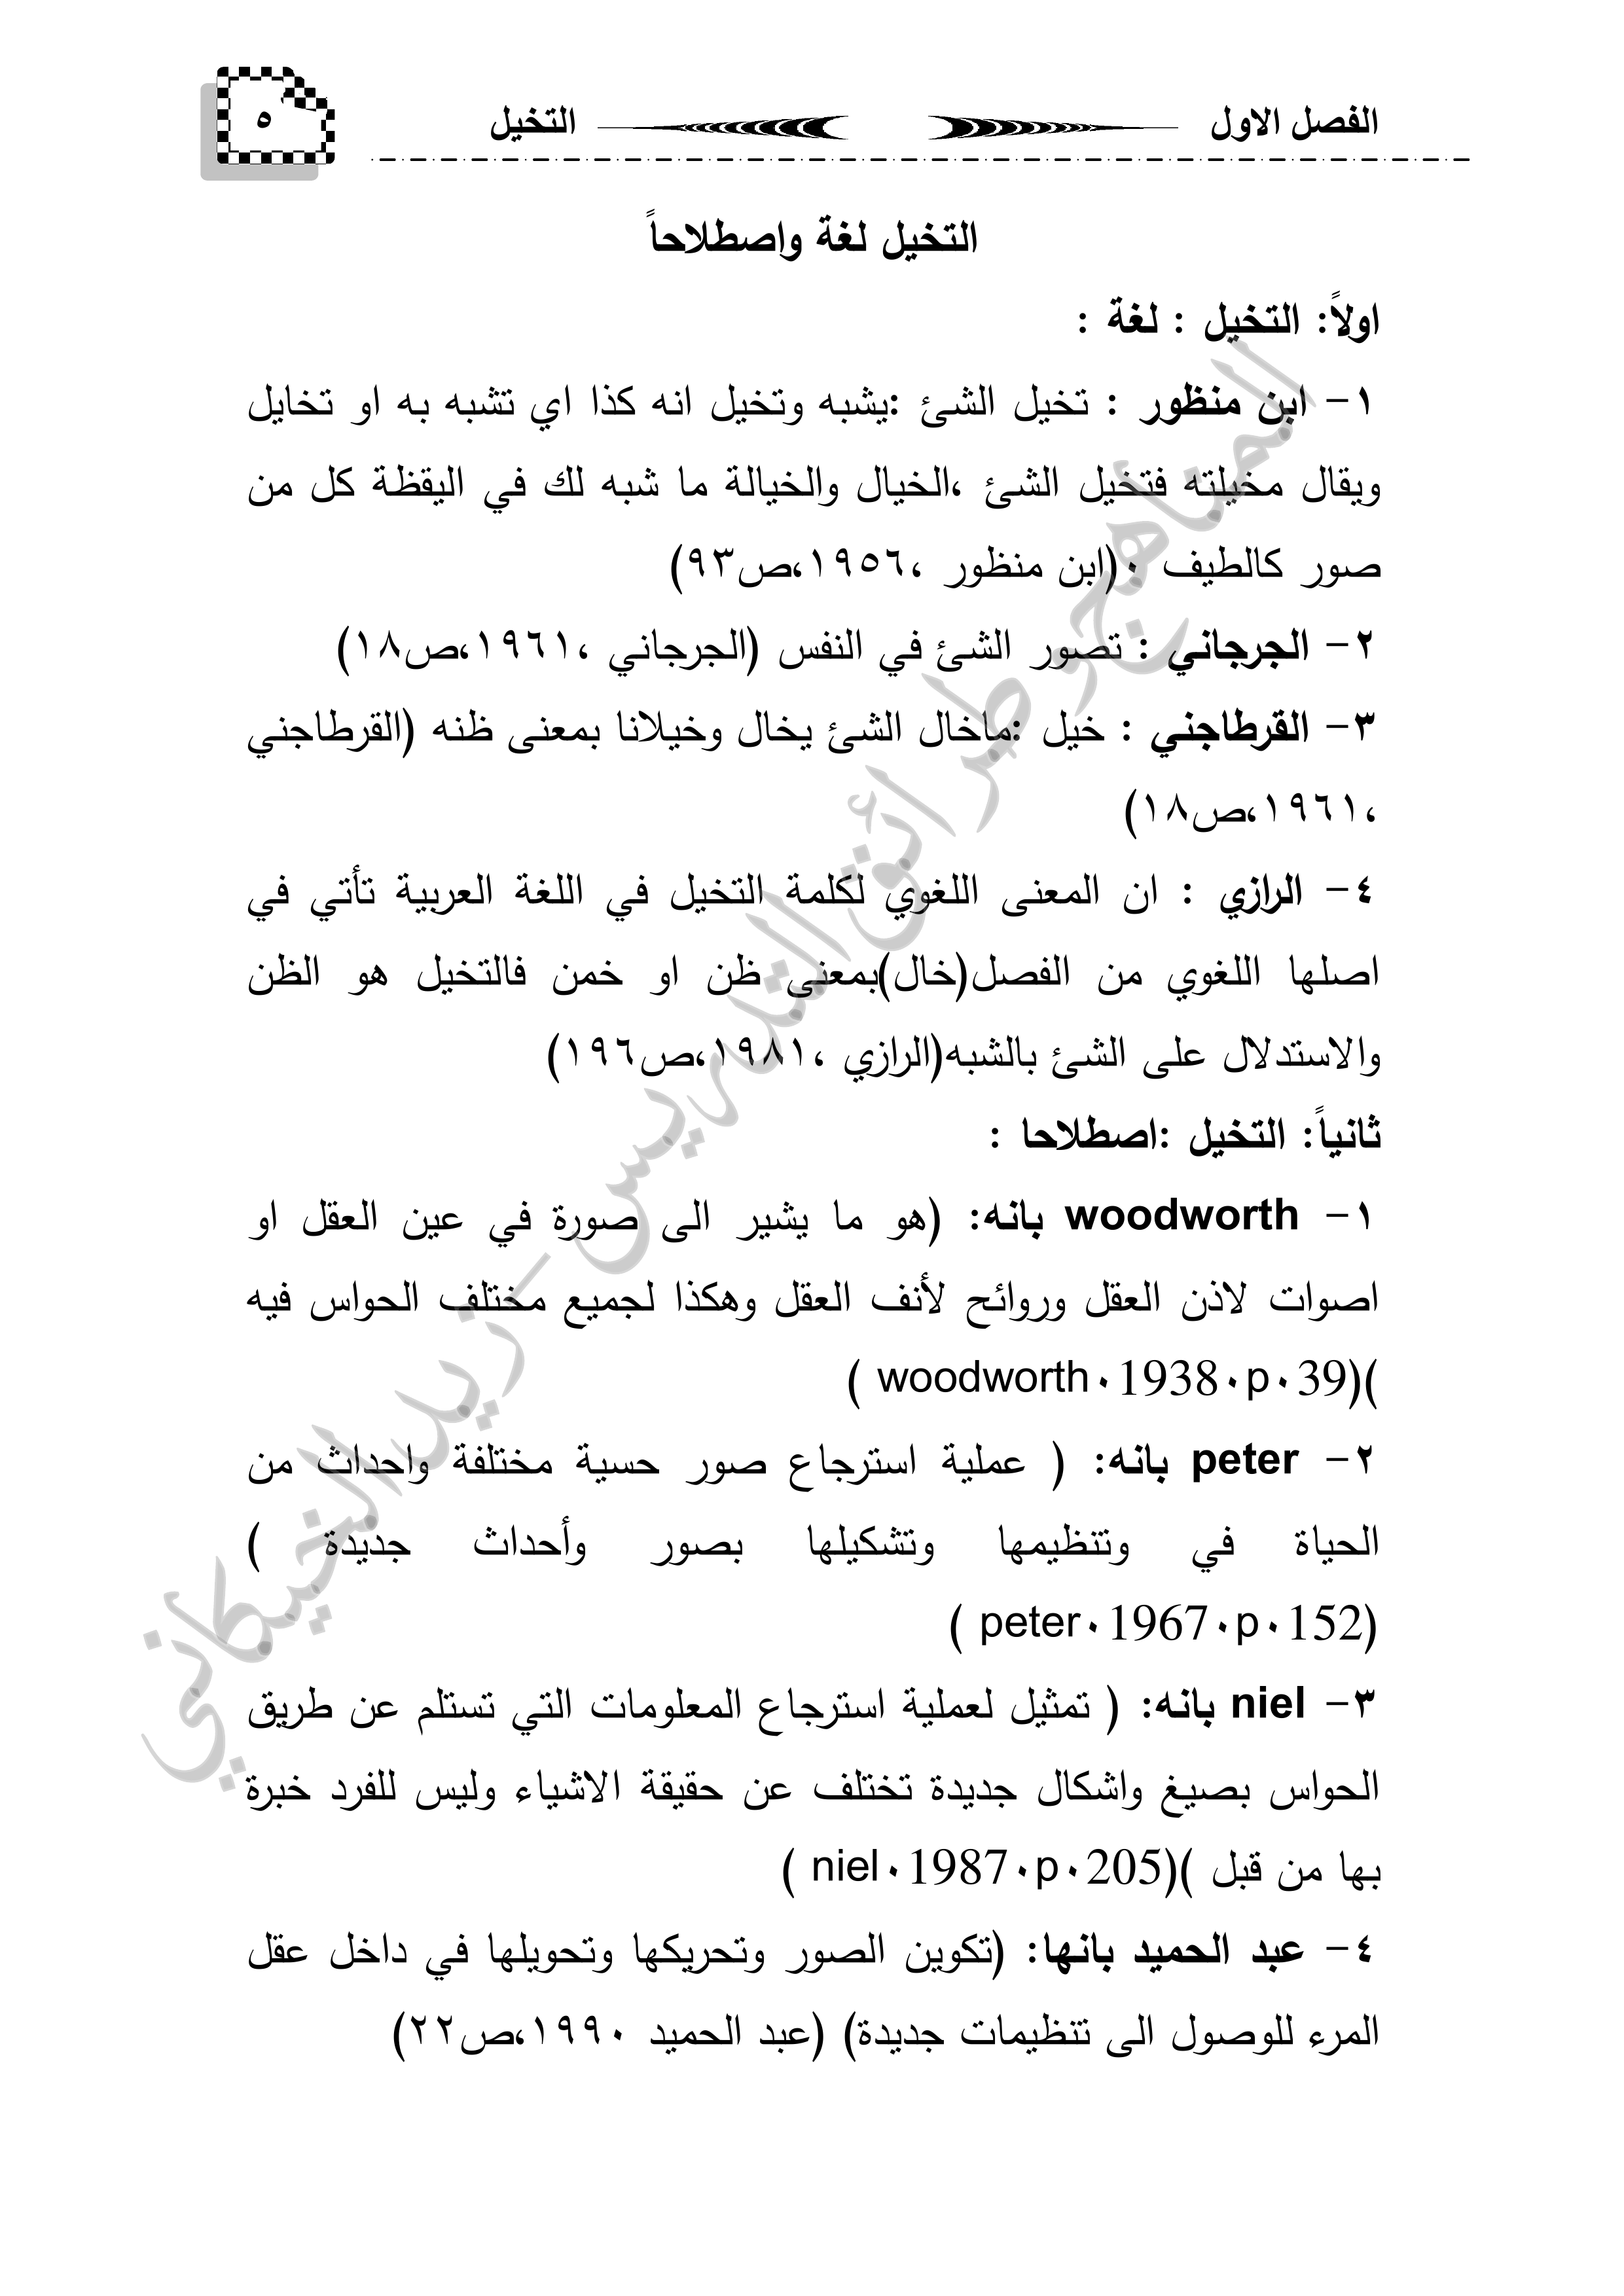 الفصل الاول التخيل ٥
التخيل لغة واصطلاحاً
اولاً: التخيل : لغة :
١- ابن منظور : تخيل الشئ :يشبه وتخيل انه كذا اي تشبه به او تخايل
ويقال مخيلته فتخيل الشئ ،الخيال والخيالة ما شبه لك في اليقظة كل من
صور كالطيف ٠(ابن منظور ،١٩٥٦،ص٩٣)
٢- الجرجاني : تصور الشئ في النفس (الجرجاني ،١٩٦١،ص١٨)
٣- القرطاجني : خيل :ماخال الشئ يخال وخيلانا بمعنى ظنه (القرطاجني
،١٩٦١،ص١٨)
٤- الرازي : ان المعنى اللغوي لكلمة التخيل في اللغة العربية تأتي في
اصلها اللغوي من الفصل(خال)بمعنى ظن او خمن فالتخيل هو الظن
والاستدلال على الشئ بالشبه(الرازي ،١٩٨١،ص١٩٦)
ثانياً: التخيل :اصطلاحا :
١- woodworth بانه: (هو ما يشير الى صورة في عين العقل او
اصوات لاذن العقل وروائح لأنف العقل وهكذا لجميع مختلف الحواس فيه
)(woodworth٠1938٠p٠39 )
٢- peter بانه: ( عملية استرجاع صور حسية مختلفة واحداث من
الحياة في وتنظيمها وتشكيلها بصور وأحداث جديدة )
(peter٠1967٠p٠152 )
٣- niel بانه: ( تمثيل لعملية استرجاع المعلومات التي تستلم عن طريق
الحواس بصيغ واشكال جديدة تختلف عن حقيقة الاشياء وليس للفرد خبرة
بها من قبل )(niel٠1987٠p٠205 )
٤- عبد الحميد بانها: (تكوين الصور وتحريكها وتحويلها في داخل عقل
المرء للوصول الى تنظيمات جديدة) (عبد الحميد ١٩٩٠،ص٢٢)
المناهج و طرائق التدريس - زيد الخيكاني